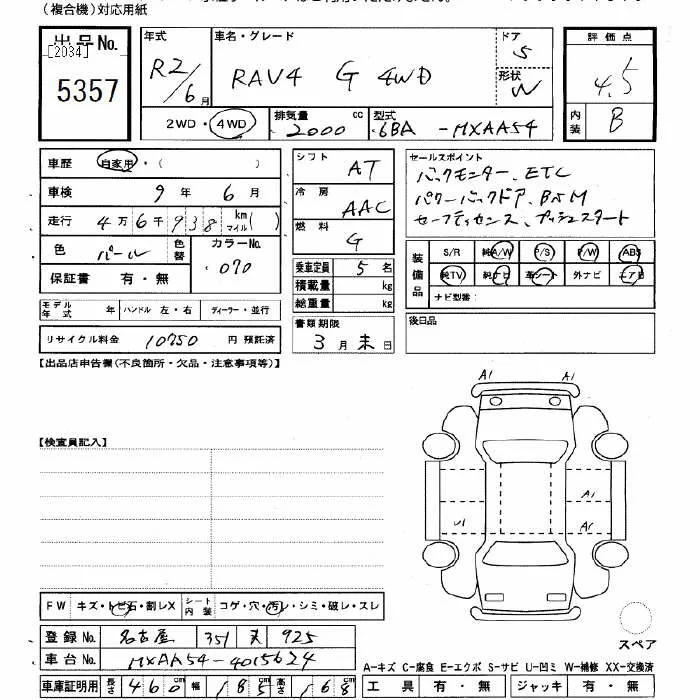 (複合機)対応用紙
出品No. [2034] 5357
年式 R2/6月
車名・グレード RAV4 G 4WD
ドア 5
形状 W
評価点 4.5
内装 B
2WD・4WD
排気量 2000 cc
型式 6BA -MXAA54
車歴 自家用・( )
車検 9年 6月
走行 4万6千938 km マイル( )
色 パール 色替 カラーNo. 070
保証書 有・無
シフト AT
冷房 AAC
燃料 G
乗車定員 5名
積載量 kg
総重量 kg
セールスポイント
バックモニター、ETC
パワーバックドア、BSM
セーフティセンス、プッシュスタート
装備品 S/R 純A/W P/S P/W ABS
純TV 純ナビ 革シート 外ナビ エアB
ナビ型番:
モデル年式 年 ハンドル 左・右 ディーラー・並行
書類期限 3月末日
後日品
リサイクル料金 10750 円 預託済
【出品店申告欄(不良箇所・欠品・注意事項等)】
A1 A1
【検査員記入】
A1
U1 A1
FW キズ・トビ石・割レX シート内装 コゲ・穴・汚レ・シミ・破レ・スレ
登録No. 名古屋 351 925
車台No. MXAA54-4015624
スペア
A-キズ C-腐食 E-エクボ S-サビ U-凹ミ W-補修 XX-交換済
車庫証明用 長さ 460cm 幅 185cm 高さ 168cm
工具 有・無 ジャッキ 有・無